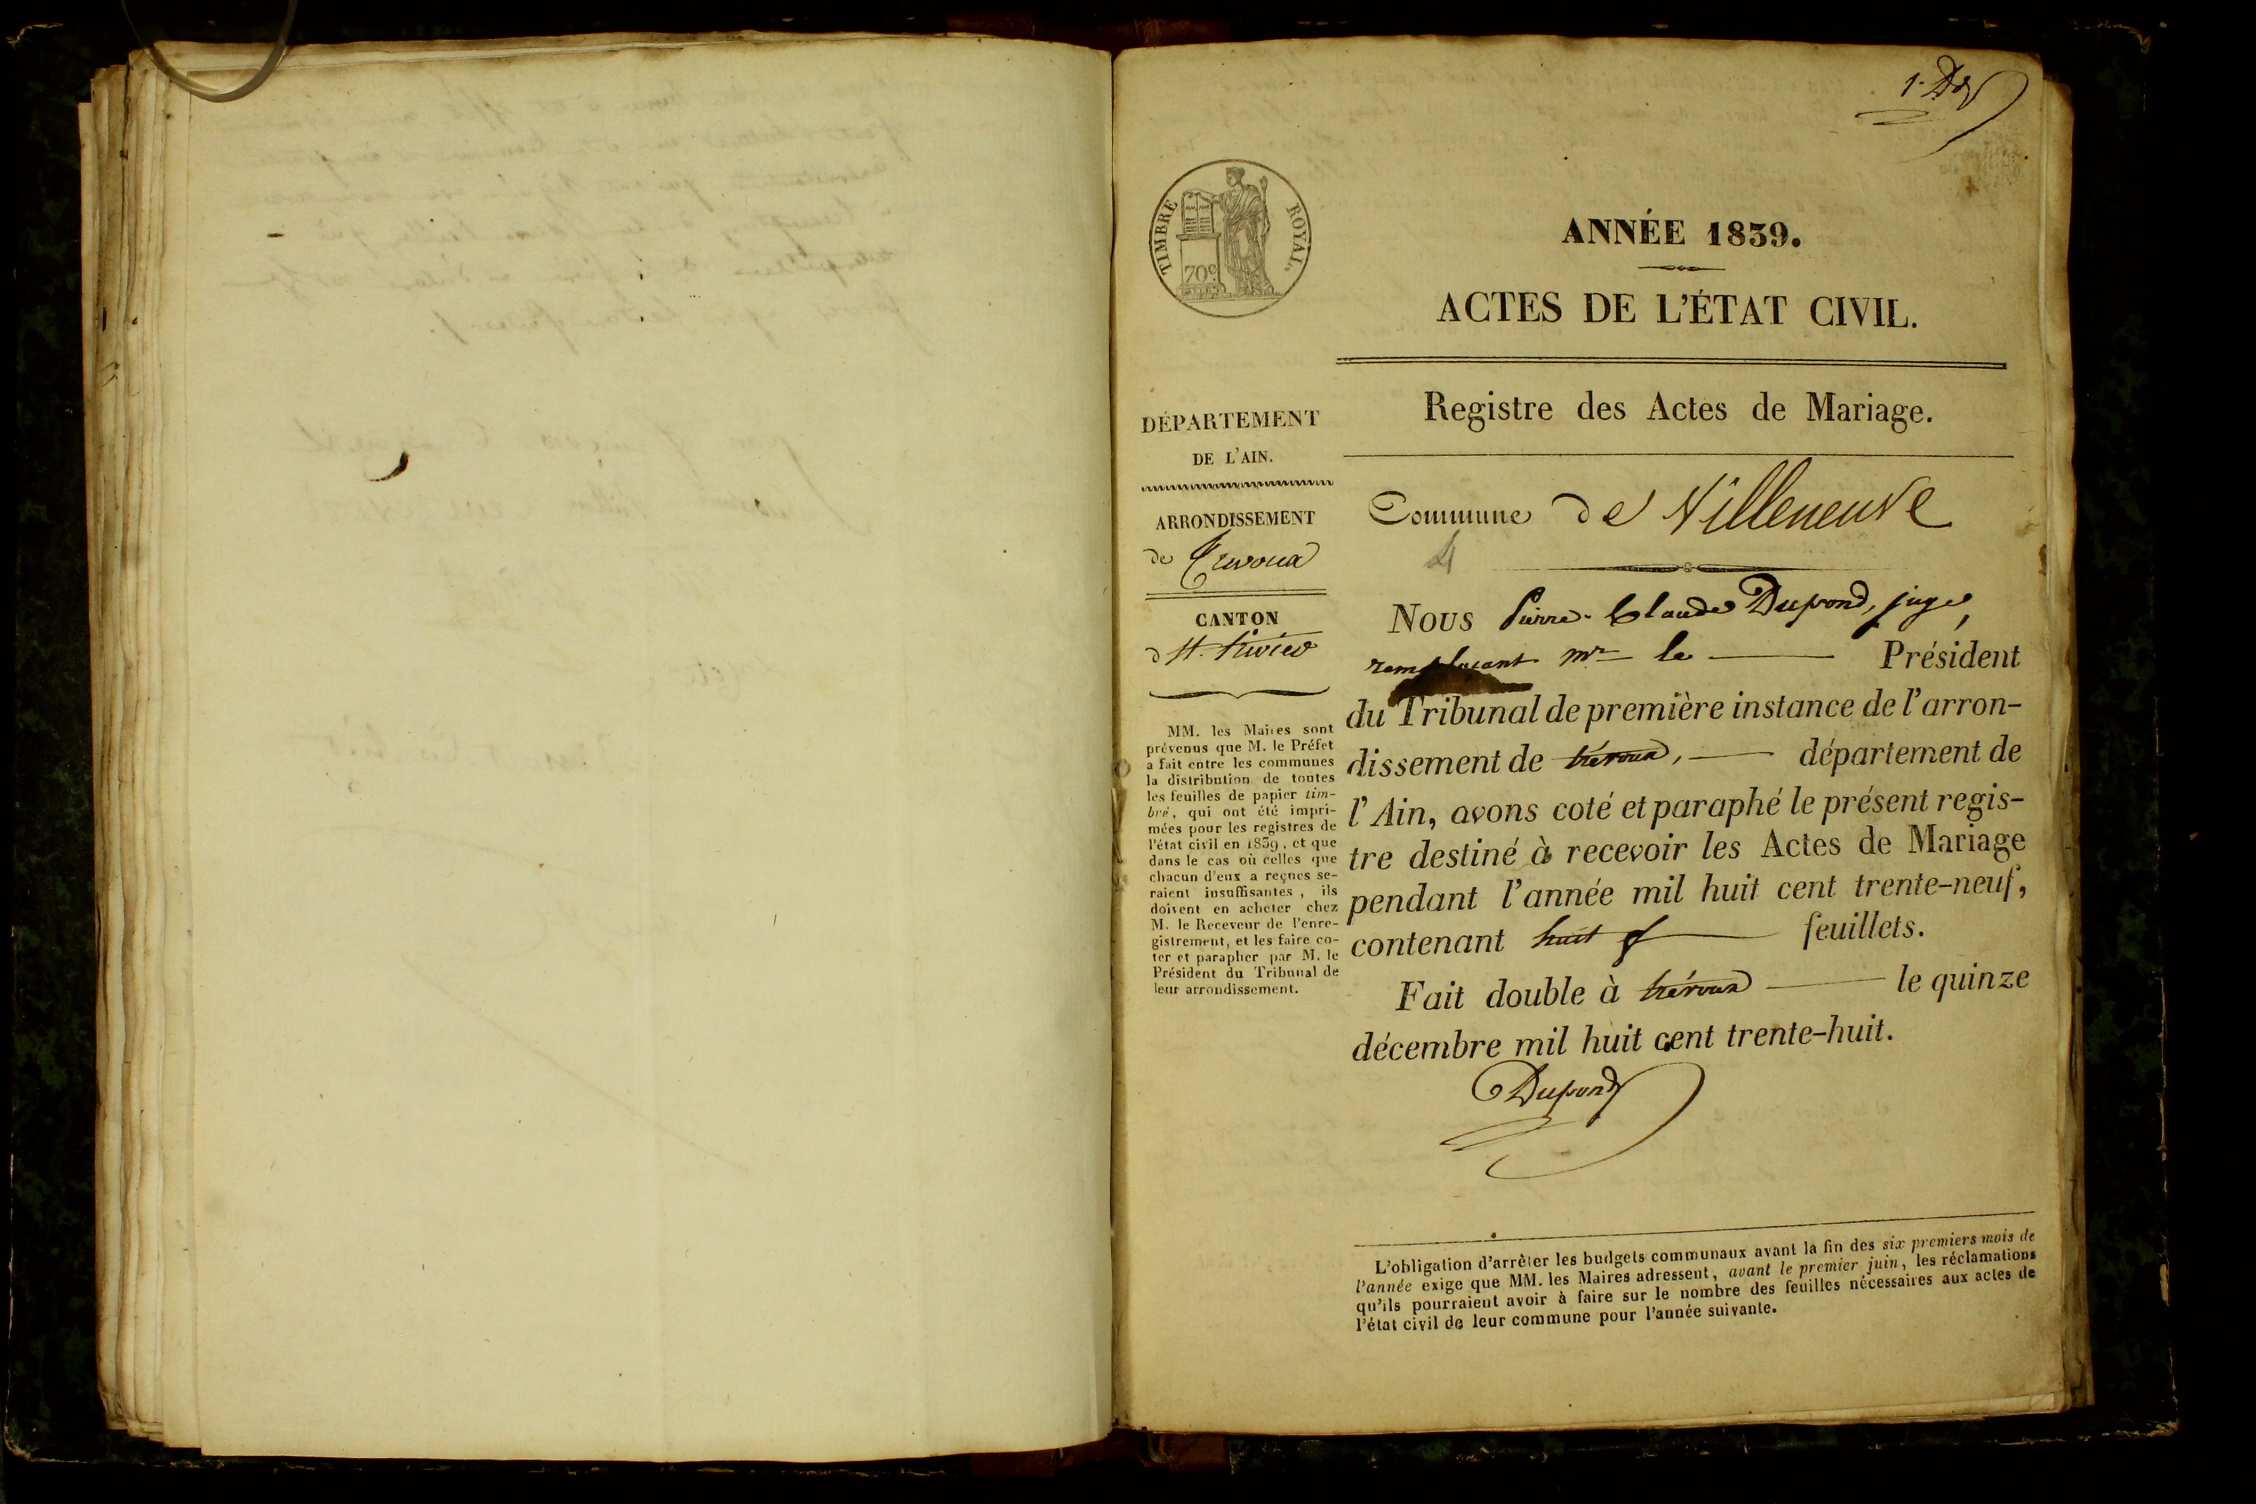 1. D
TIMBRE ROYAL
70c.
ANNÉE 1839.
ACTES DE L'ÉTAT CIVIL.
Registre des Actes de Mariage.
DÉPARTEMENT
DE L'AIN.
ARRONDISSEMENT
de Trévoux
CANTON
d St. Trivier
MM. les Maires sont
prévenus que M. le Préfet
a fait entre les communes
la distribution de toutes
les feuilles de papier tim-
bré, qui ont été impri-
mées pour les registres de
l'état civil en 1839, et que
dans le cas où celles que
chacun d'eux a reçues se-
raient insuffisantes, ils
doivent en acheter chez
M. le Receveur de l'enre-
gistrement, et les faire co-
ter et parapher par M. le
Président du Tribunal de
leur arrondissement.
Commune de Villeneuve
Nous Pierre-Claude Dupond, juge,
remplaçant mr le Président
du Tribunal de première instance de l'arron-
dissement de trévoux, département de
l'Ain, avons coté et paraphé le présent regis-
tre destiné à recevoir les Actes de Mariage
pendant l'année mil huit cent trente-neuf,
contenant huit feuillets.
Fait double à trévoux le quinze
décembre mil huit cent trente-huit.
Dupond
L'obligation d'arrêter les budgets communaux avant la fin des six premiers mois de
l'année exige que MM. les Maires adressent, avant le premier juin, les réclamations
qu'ils pourraient avoir à faire sur le nombre des feuilles nécessaires aux actes de
l'état civil de leur commune pour l'année suivante.